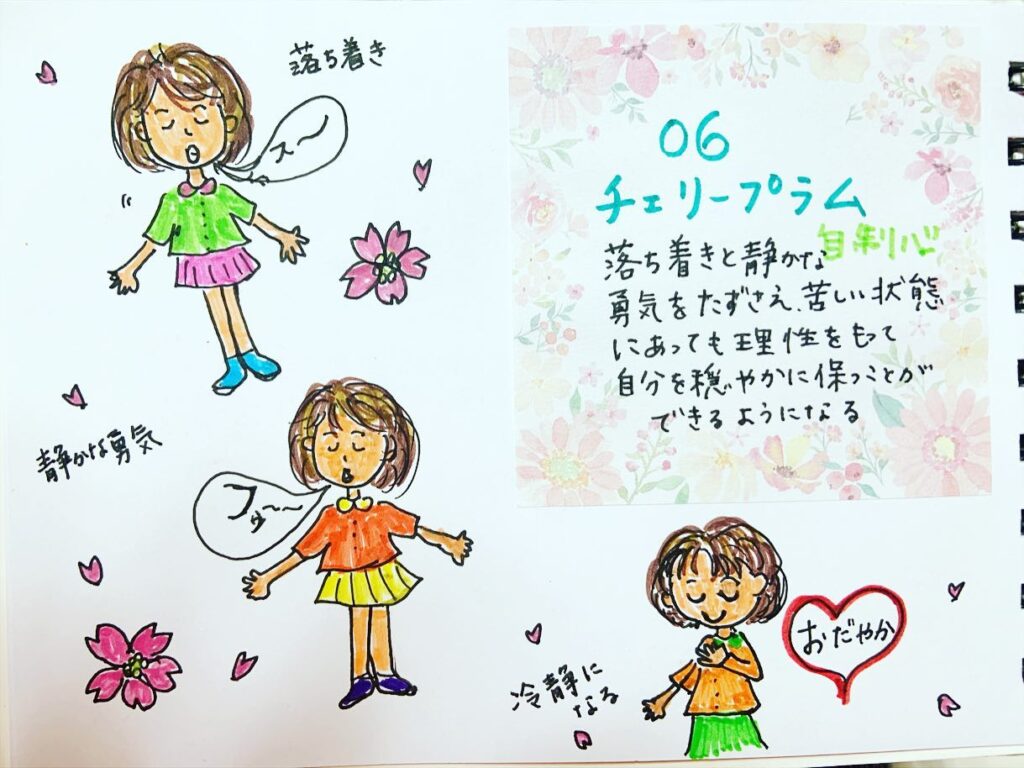 落ち着き
スー〜
06
チェリープラム
自制心
落ち着きと静かな
勇気をたずさえ、苦しい状態
にあっても理性をもって
自分を穏やかに保つことが
できるようになる
静かな勇気
フゥ〜〜
おだやか
冷静に
なる